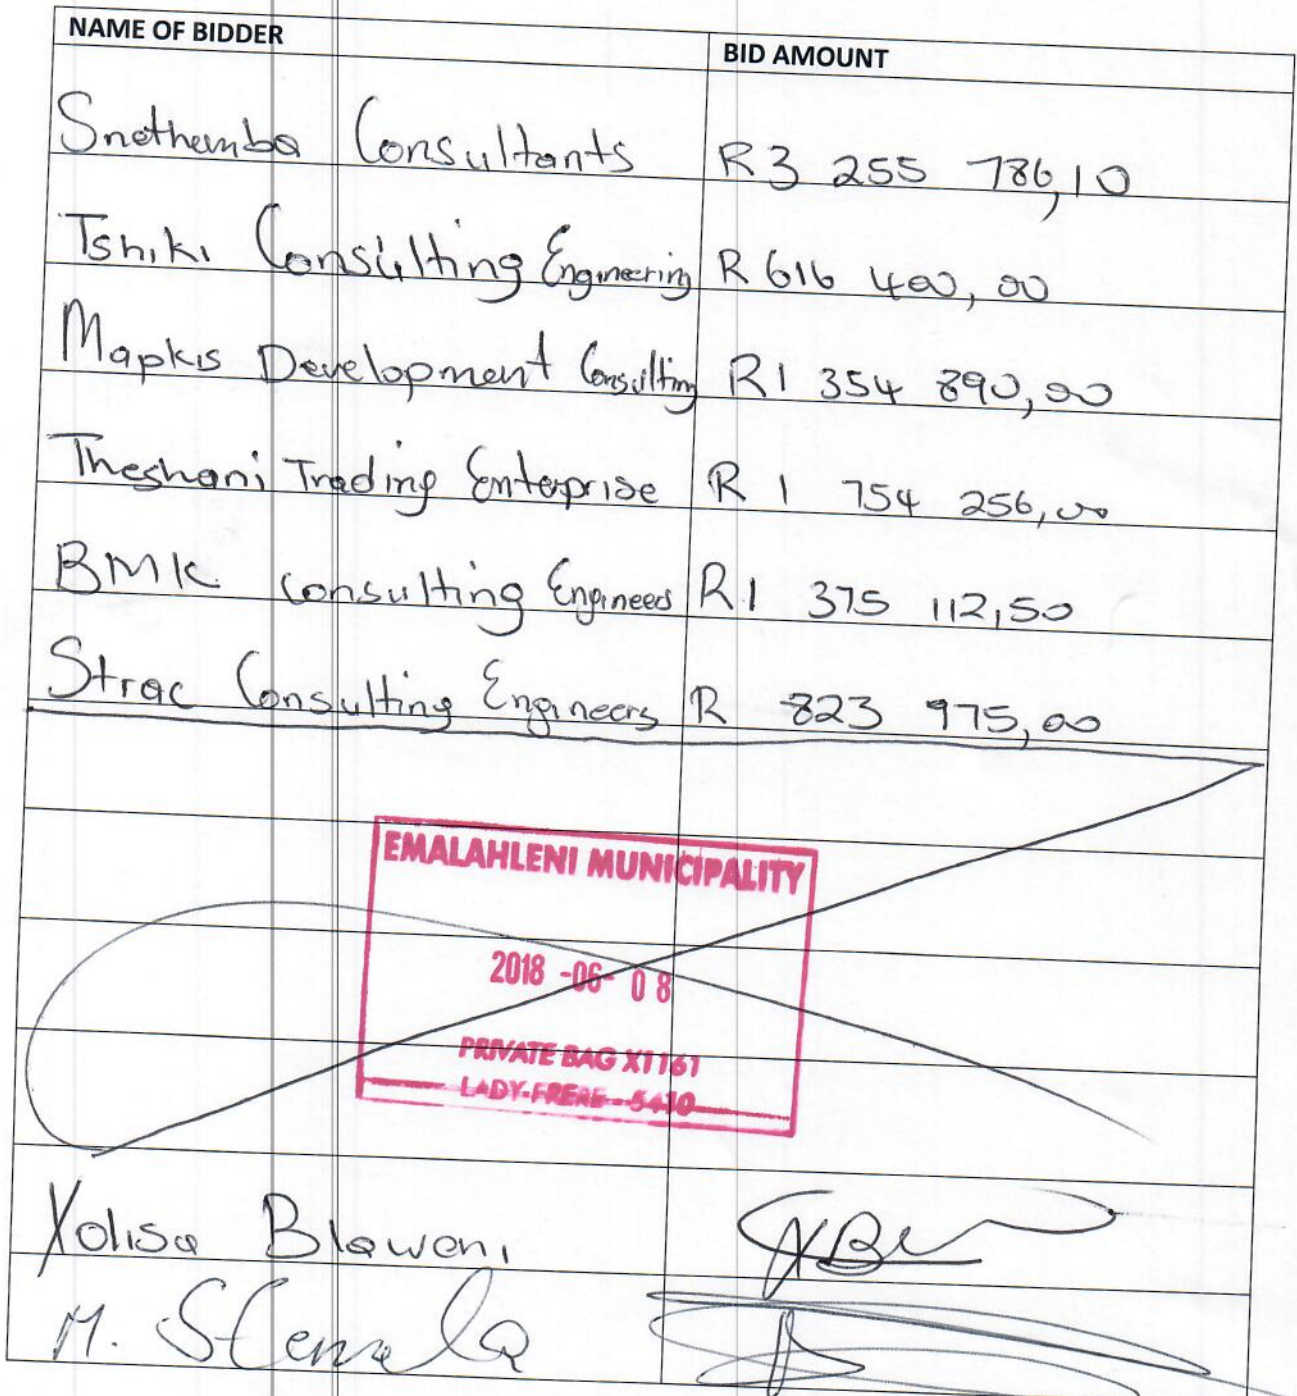 NAME OF BIDDER BID AMOUNT
Snethemba Consultants R3 255 786,10
Tshiki Consulting Engineering R 616 400,00
Mapkis Development Consulting R1 354 890,00
Theshani Trading Enterprise R 1 754 256,00
BMK consulting Engineers R1 375 112,50
Strac Consulting Engineers R 823 975,00
EMALAHLENI MUNICIPALITY
2018 -06- 08
PRIVATE BAG X1161
LADY-FRERE - 5410
Xolisa Blaweni
M.